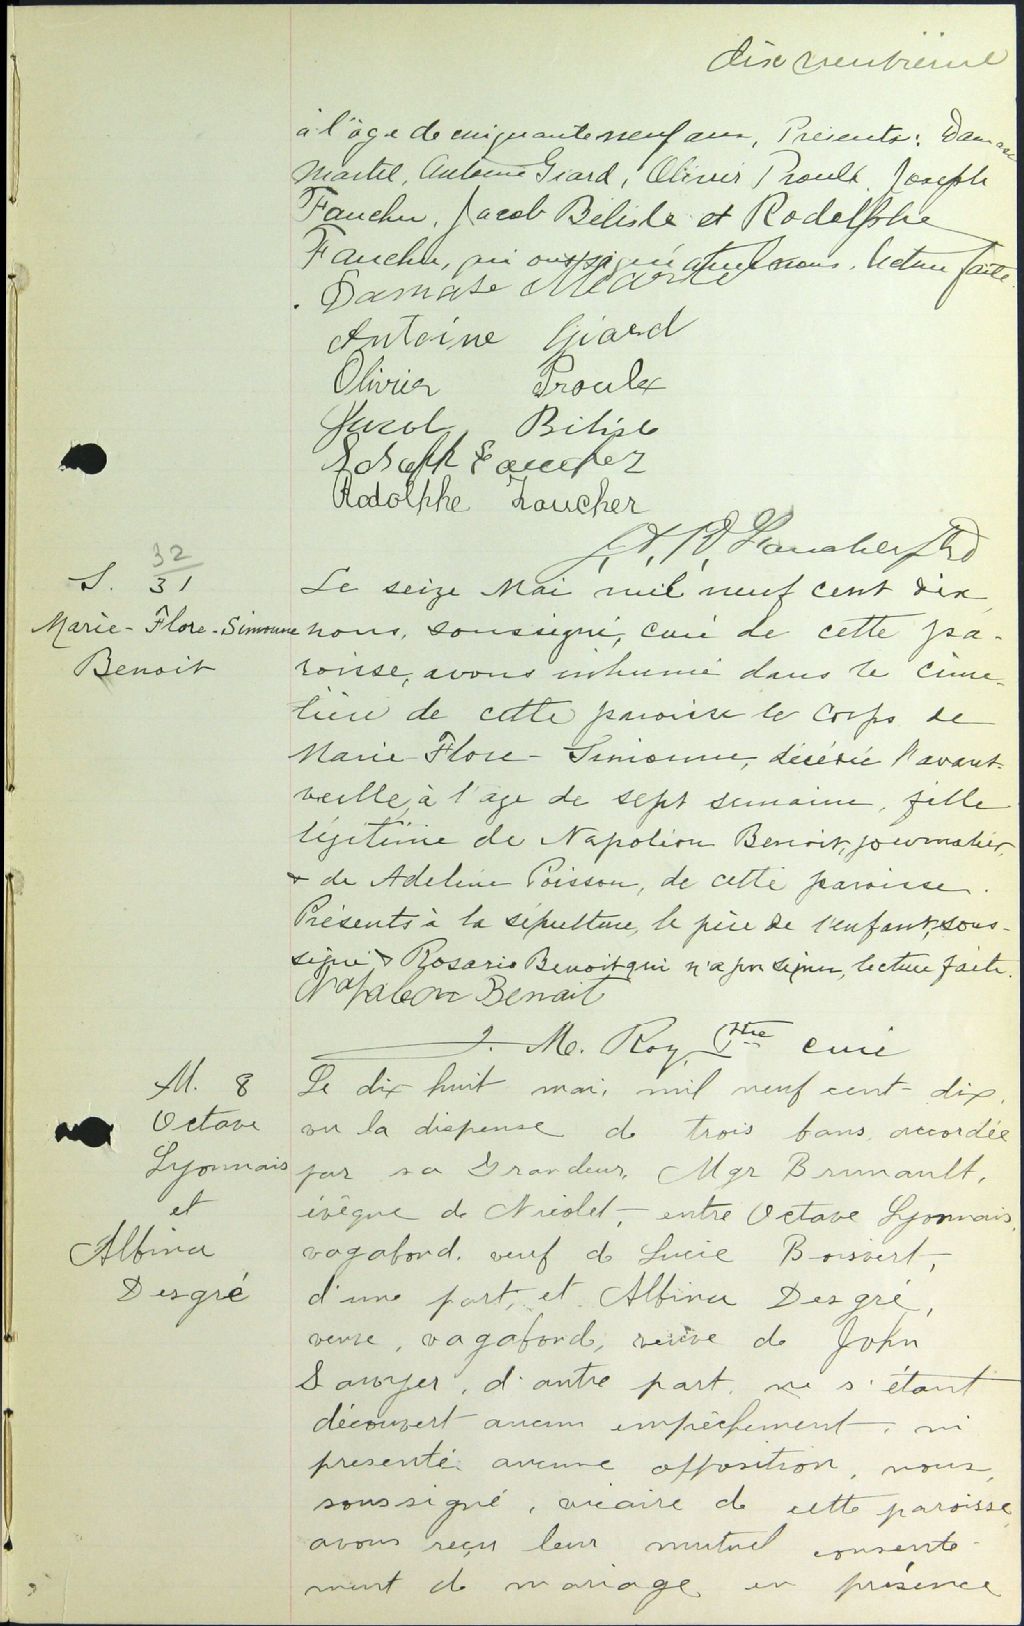 dix neuvième
à l'âge de cinquante neuf ans, Présents: Damase
Martel, Antoine Giard, Olivier Proulx, Joseph
Faucher, Jacob Bélisle et Rodolphe
Faucher, qui ont signé avec nous. lecture faite.
Damase Martel
Antoine Giard
Olivier Proulx
Jacob Bélisle
Joseph Faucher
Rodolphe Faucher
Faucher Ptre
32
S. 31
Marie-Flore-Simonne
Benoit
Le seize Mai mil neuf cent dix,
nous, soussigné, curé de cette pa-
roisse, avons inhumé dans le cime-
tière de cette paroisse le corps de
Marie-Flore-Simonne, décédée l'avant-
veille, à l'âge de sept semaines, fille
légitime de Napoléon Benoit, journalier,
& de Adeline Poisson, de cette paroisse.
Présents à la sépulture, le père de l'enfant, sous-
signé & Rosario Benoit qui n'a pu signer, lecture faite.
Napoleon Benoit
J. M. Roy, Ptre curé
M. 8
Octave
Lyonnais
et
Albina
Desgré
Le dix huit mai, mil neuf cent-dix,
vu la dispense de trois bans accordée
par sa Grandeur, Mgr Brunault,
évêque de Nicolet, entre Octave Lyonnais,
vagabond, veuf de Lucie Boisvert,
d'une part, et Albina Desgré,
veuve, vagabond, veuve de John
Sawyer, d'autre part, ne s'étant
découvert aucun empêchement, ni
presenté aucune opposition, nous,
soussigné, vicaire de cette paroisse,
avons reçu leur mutuel consente-
ment de mariage en présence